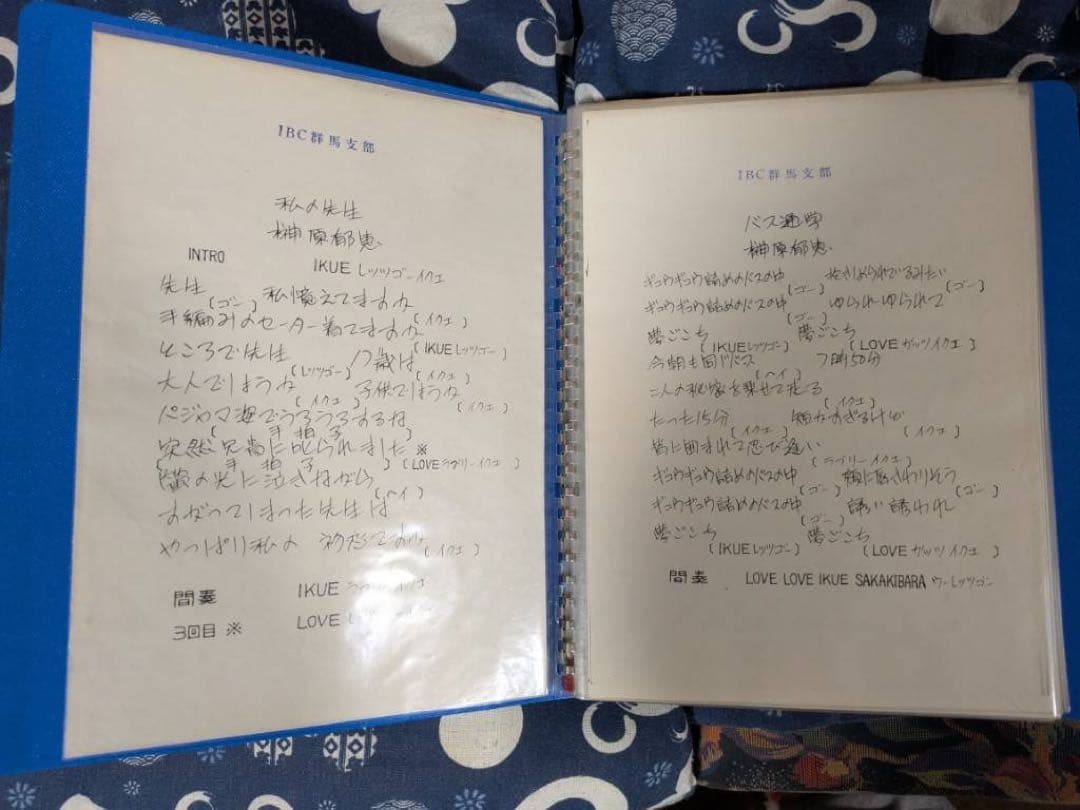 IBC群馬支部
私の先生
榊原郁恵
INTRO IKUE レッツゴーイクエ
先生 私憶えてますね
(ゴー) (イクエ)
手編みのセーター着てますね
(IKUEレッツゴー)
ところで先生 17歳は
(レッツゴー) (イクエ)
大人でしょうね 子供でしょうね
(イクエ) (イクエ)
パジャマ姿でうろうろするな
(手拍子)
突然兄貴に叱られました ※
(手拍子) (LOVEラブリーイクエ)
(ヘイ)
すがってしまった先生は
やっぱり私の 初恋ですね
(イクエ)
間奏 IKUE
3回目 ※ LOVE
IBC群馬支部
バス通学
榊原郁恵
ギュウギュウ詰めのバスの中 抱きしめられてるみたい
(ゴー) (ゴー)
ギュウギュウ詰めのバスの中 ゆられゆられて
(ゴー)
夢ごこち 夢ごこち
(IKUEレッツゴー) (LOVE ガッツ イクエ)
今朝も同じバス 7時50分
(ヘイ)
二人の秘密を乗せて走る
(イクエ)
たった15分 短かすぎるけど
(イクエ) (イクエ)
皆に囲まれて忍び逢い
(ラブリーイクエ)
ギュウギュウ詰めのバスの中 頬にもさわりそう
(ゴー) (ゴー)
ギュウギュウ詰めのバスの中 誘い誘われ
(ゴー)
夢ごこち 夢ごこち
(IKUEレッツゴー) (LOVE ガッツ イクエ)
間奏 LOVE LOVE IKUE SAKAKIBARA ウーレッツゴー